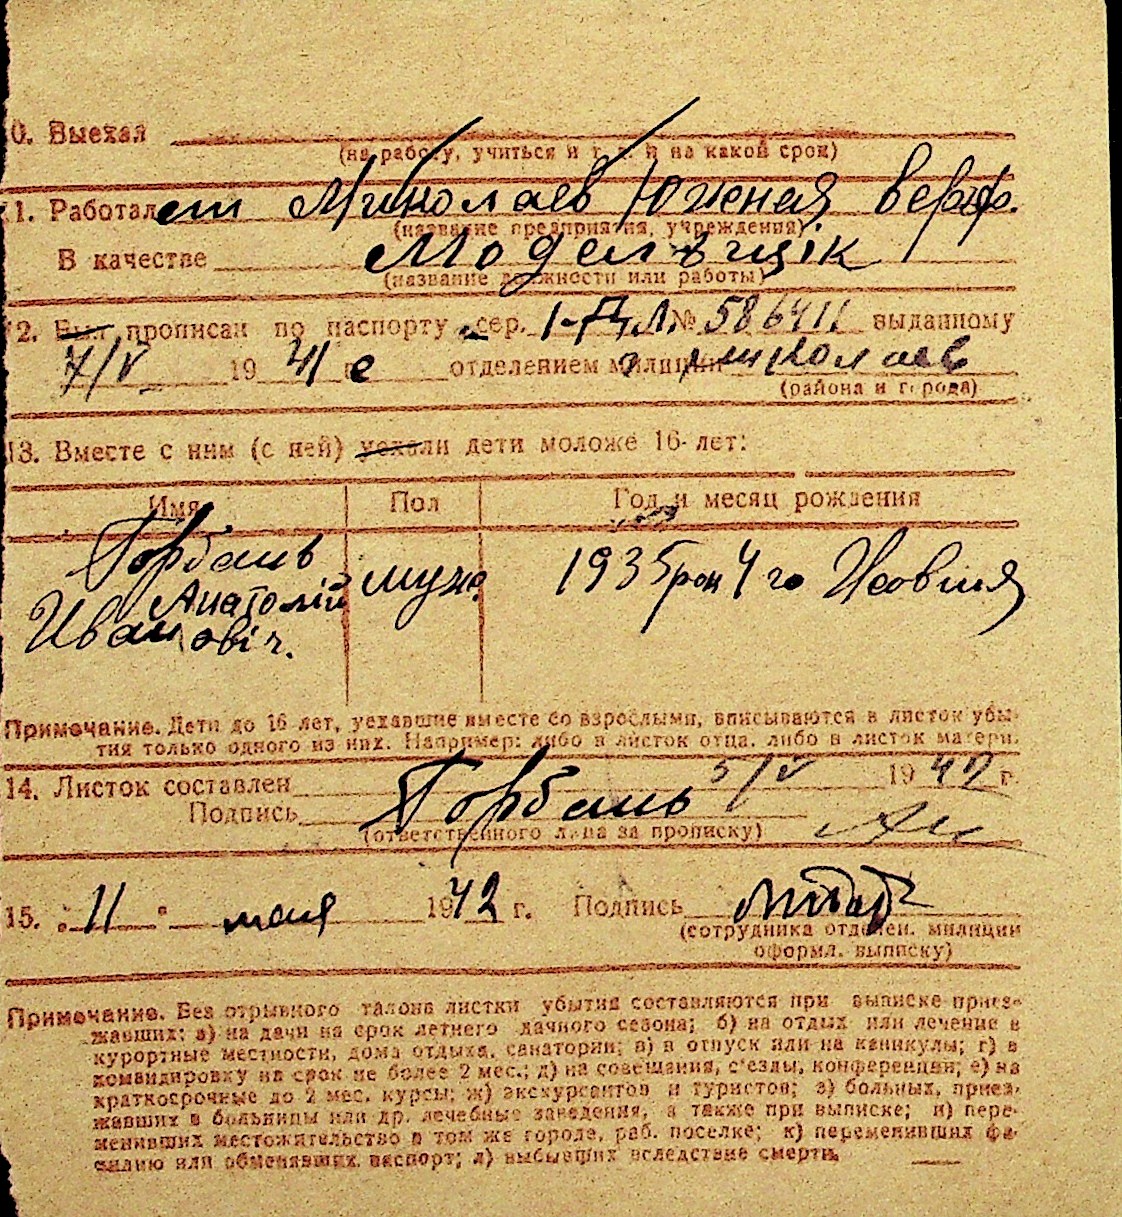 0. Выехал
(на работу, учиться и т. д. и на какой срок)
11. Работает Миколаев Южная верф.
(название предприятия, учреждения)
В качестве Моделъщік
(название должности или работы)
12. Был прописан по паспорту сер. 1-ДЛ № 586411 выданному
7/V 1941 г отделением милиции Миколаев
(района и города)
13. Вместе с ним (с ней) уехали дети моложе 16-лет:
Имя Пол Год и месяц рождения
Горбань Анатолій Івановіч. муж. 1935 рок 4 го Жовтня
Примечание. Дети до 16 лет, уехавшие вместе со взрослыми, вписываются в листок убы-
тия только одного из них. Например: либо в листок отца, либо в листок матери.
14. Листок составлен 5/V 1942 г.
Подпись Горбань
(ответственного лица за прописку)
15. "11" мая 1942 г. Подпись
(сотрудника отделен. милиции
оформл. выписку)
Примечание. Без отрывного талона листки убытия составляются при выписке приез-
жавших: а) на дачи на срок летнего дачного сезона; б) на отдых или лечение в
курортные местности, дома отдыха, санатории; в) в отпуск или на каникулы; г) в
командировку на срок не более 2 мес.; д) на совещания, с'езды, конференции; е) на
краткосрочные до 2 мес. курсы; ж) экскурсантов и туристов; з) больных, приез-
жавших в больницы или др. лечебные заведения, а также при выписке; и) пере-
менивших местожительство в том же городе, раб. поселке; к) переменивших фа-
милию или обменявших паспорт; л) выбывших вследствие смерти.